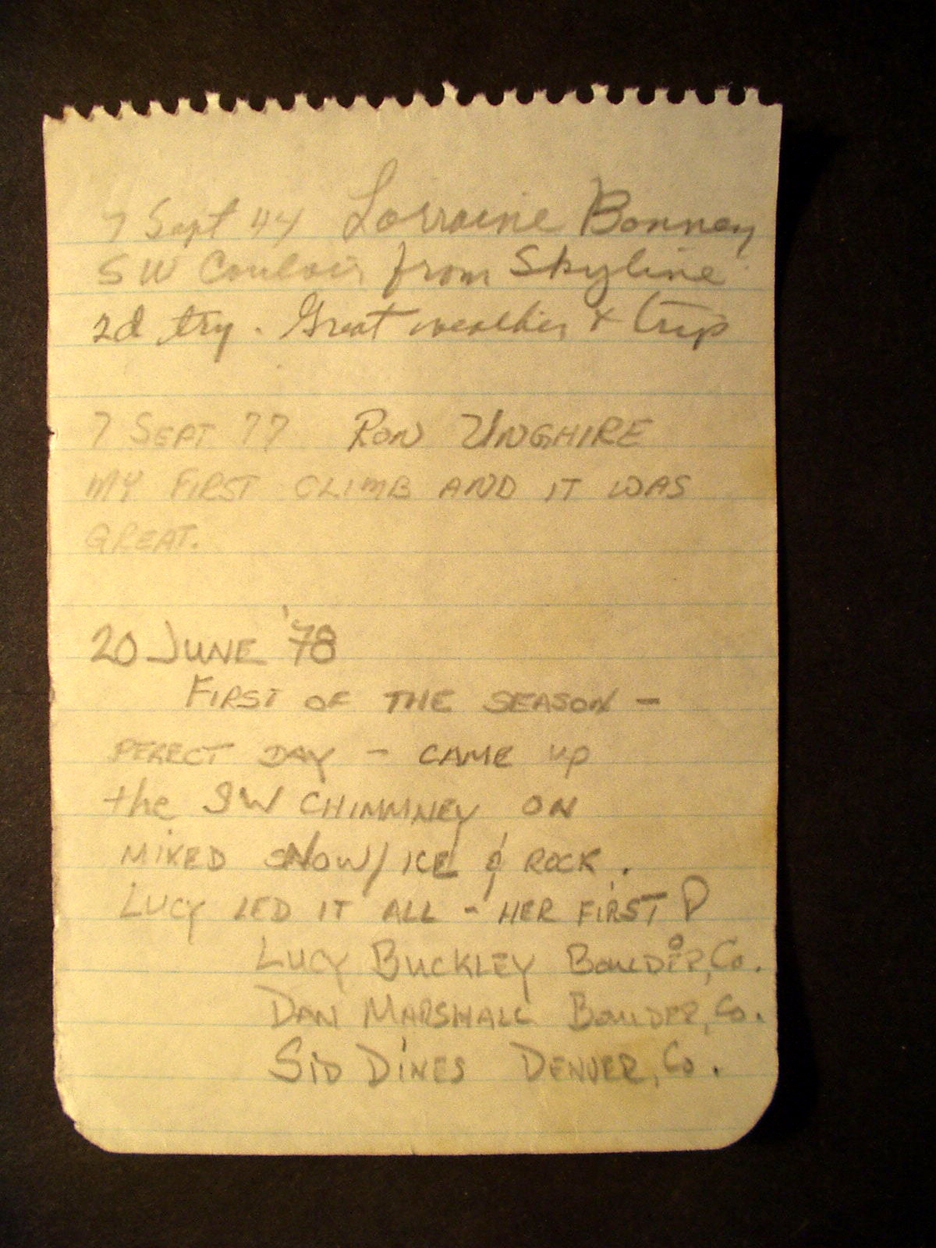 7 Sept 77 Lorraine Bonney
SW Couloir from Skyline
2d try. Great weather & trip
7 SEPT 77 RON UNGHIRE
MY FIRST CLIMB AND IT WAS
GREAT.
20 JUNE '78
FIRST OF THE SEASON -
PERECT DAY - CAME UP
the SW CHIMMNEY ON
MIXED SNOW/ICE & ROCK.
LUCY LED IT ALL - HER FIRST
LUCY BUCKLEY BOULDER, CO.
DAN MARSHALL BOULDER, CO.
SID DINES DENVER, CO.